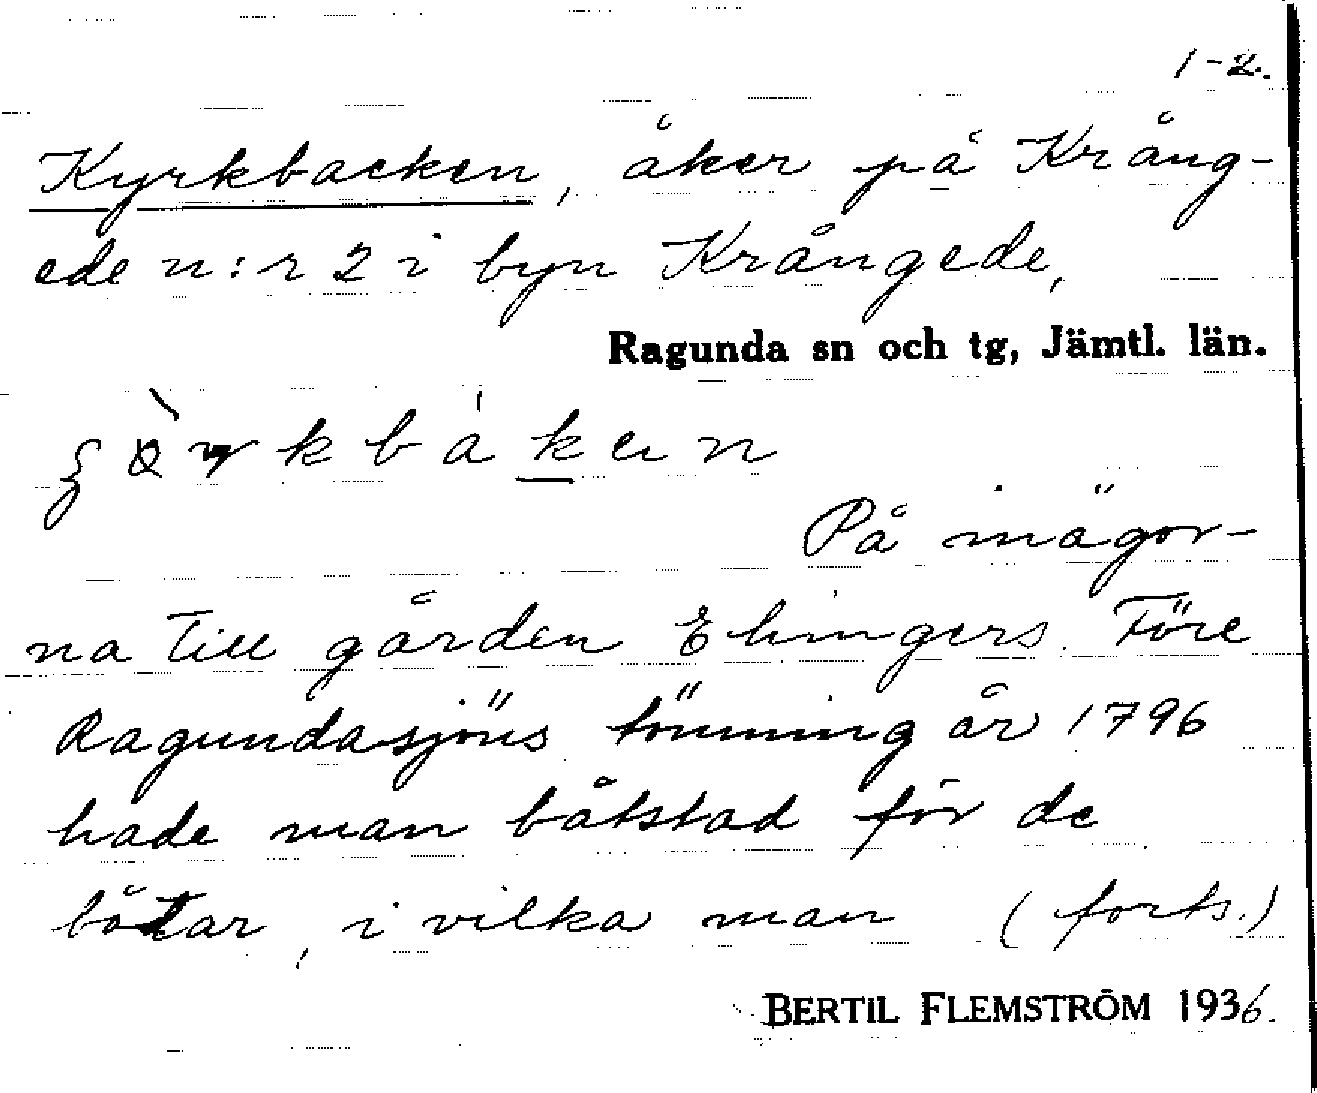 1-2.
Kyrkbacken, åker på Krång-
ede n:r 2 i byn Krångede,
Ragunda sn och tg, Jämtl. län.
På inägor-
na till gården Ehingers. Före
Ragundasjöns tömning år 1796
hade man båtstad för de
båtar, i vilka man (forts.)
BERTIL FLEMSTRÖM 1936.